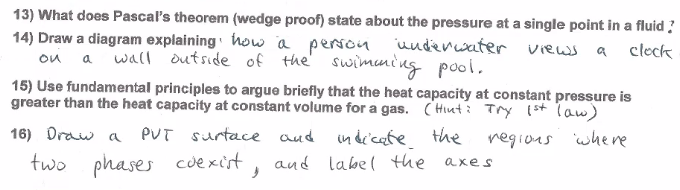 13) What does Pascal's theorem (wedge proof) state about the pressure at a single point in a fluid ?
14) Draw a diagram explaining how a person underwater views a clock
on a wall outside of the swimming pool.
15) Use fundamental principles to argue briefly that the heat capacity at constant pressure is
greater than the heat capacity at constant volume for a gas. (Hint: Try 1st law)
16) Draw a PVT surface and indicate the regions where
two phases coexist, and label the axes